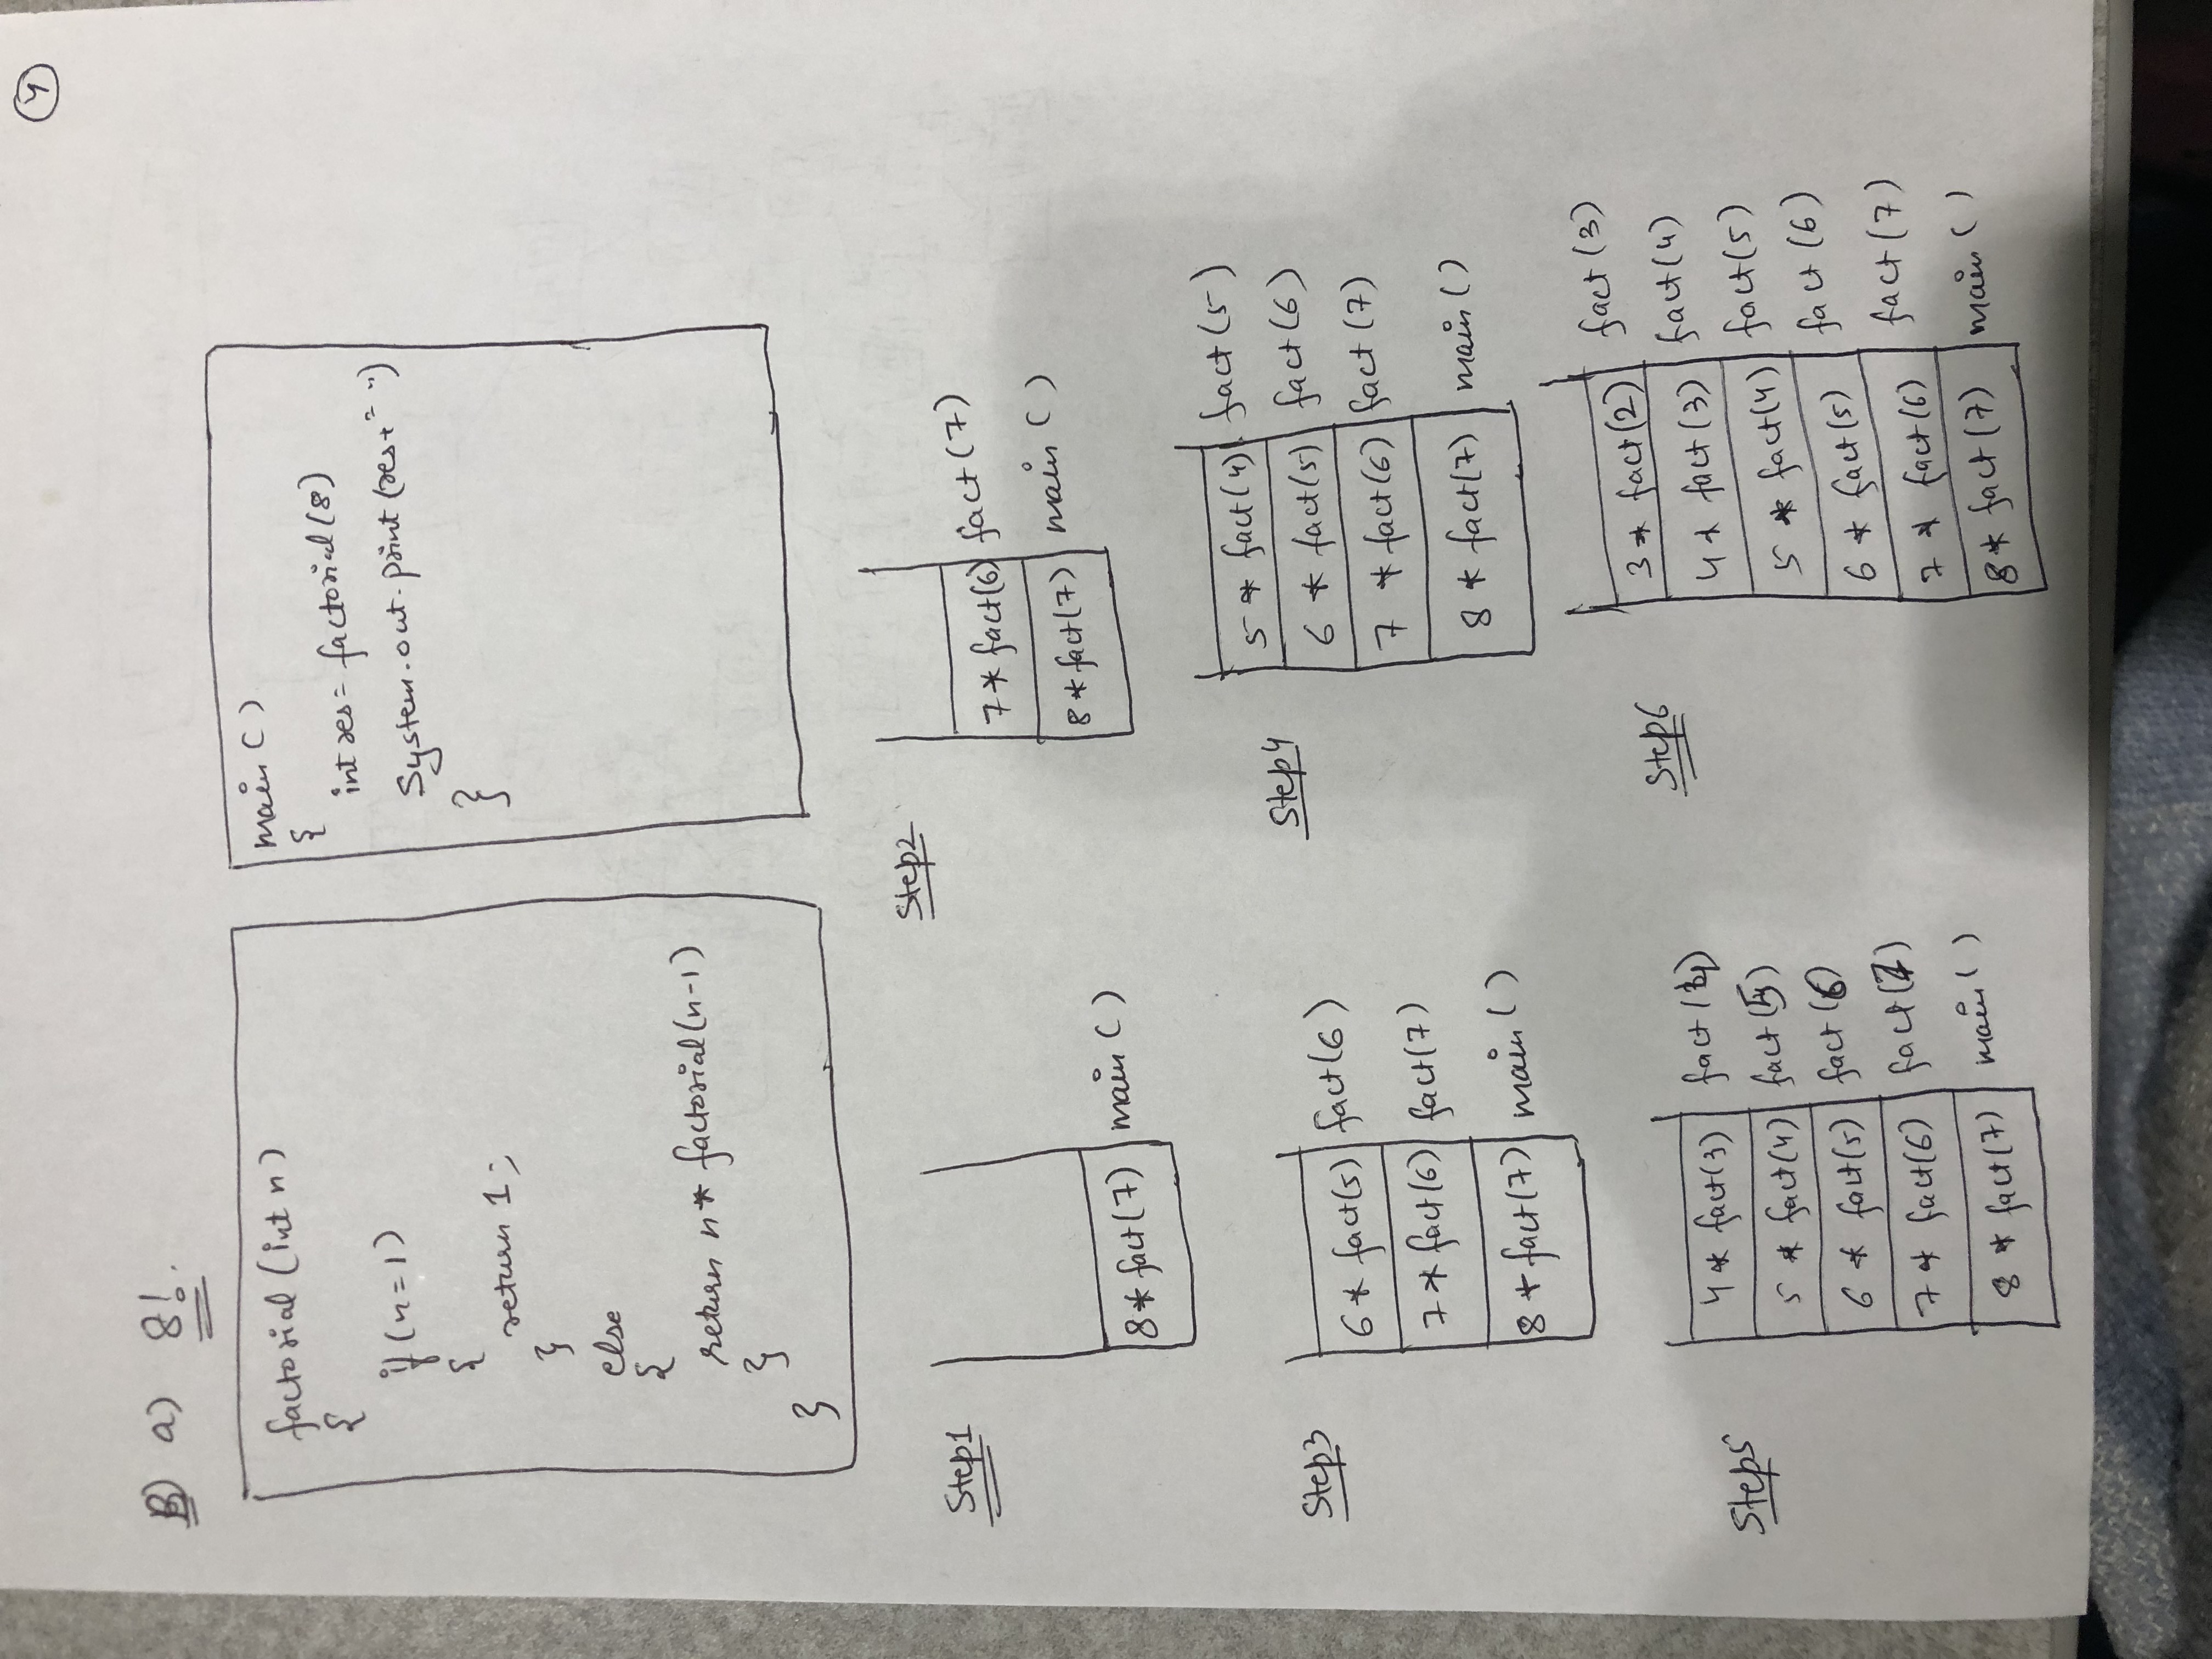 4
B) a) 8!.
factorial (int n)
{
if (n=1)
{
return 1;
}
else
{
return n* factorial(n-1)
}
}
main ( )
{
int res = factorial (8)
System.out.print (res+" ")
}
Step1
8* fact(7) main ( )
Step2
7* fact(6) fact (7)
8* fact(7) main ( )
Step3
6* fact(5) fact (6)
7* fact(6) fact(7)
8* fact(7) main ( )
Step4
5 * fact(4) fact (5)
6 * fact(5) fact (6)
7 * fact(6) fact (7)
8 * fact(7) main ( )
Step5
4 * fact(3) fact (4)
5 * fact(4) fact (5)
6 * fact(5) fact (6)
7 * fact(6) fact (7)
8 * fact(7) main ( )
Step6
3 * fact(2) fact (3)
4 * fact (3) fact (4)
5 * fact(4) fact (5)
6 * fact(5) fact (6)
7 * fact(6) fact (7)
8* fact (7) main ( )